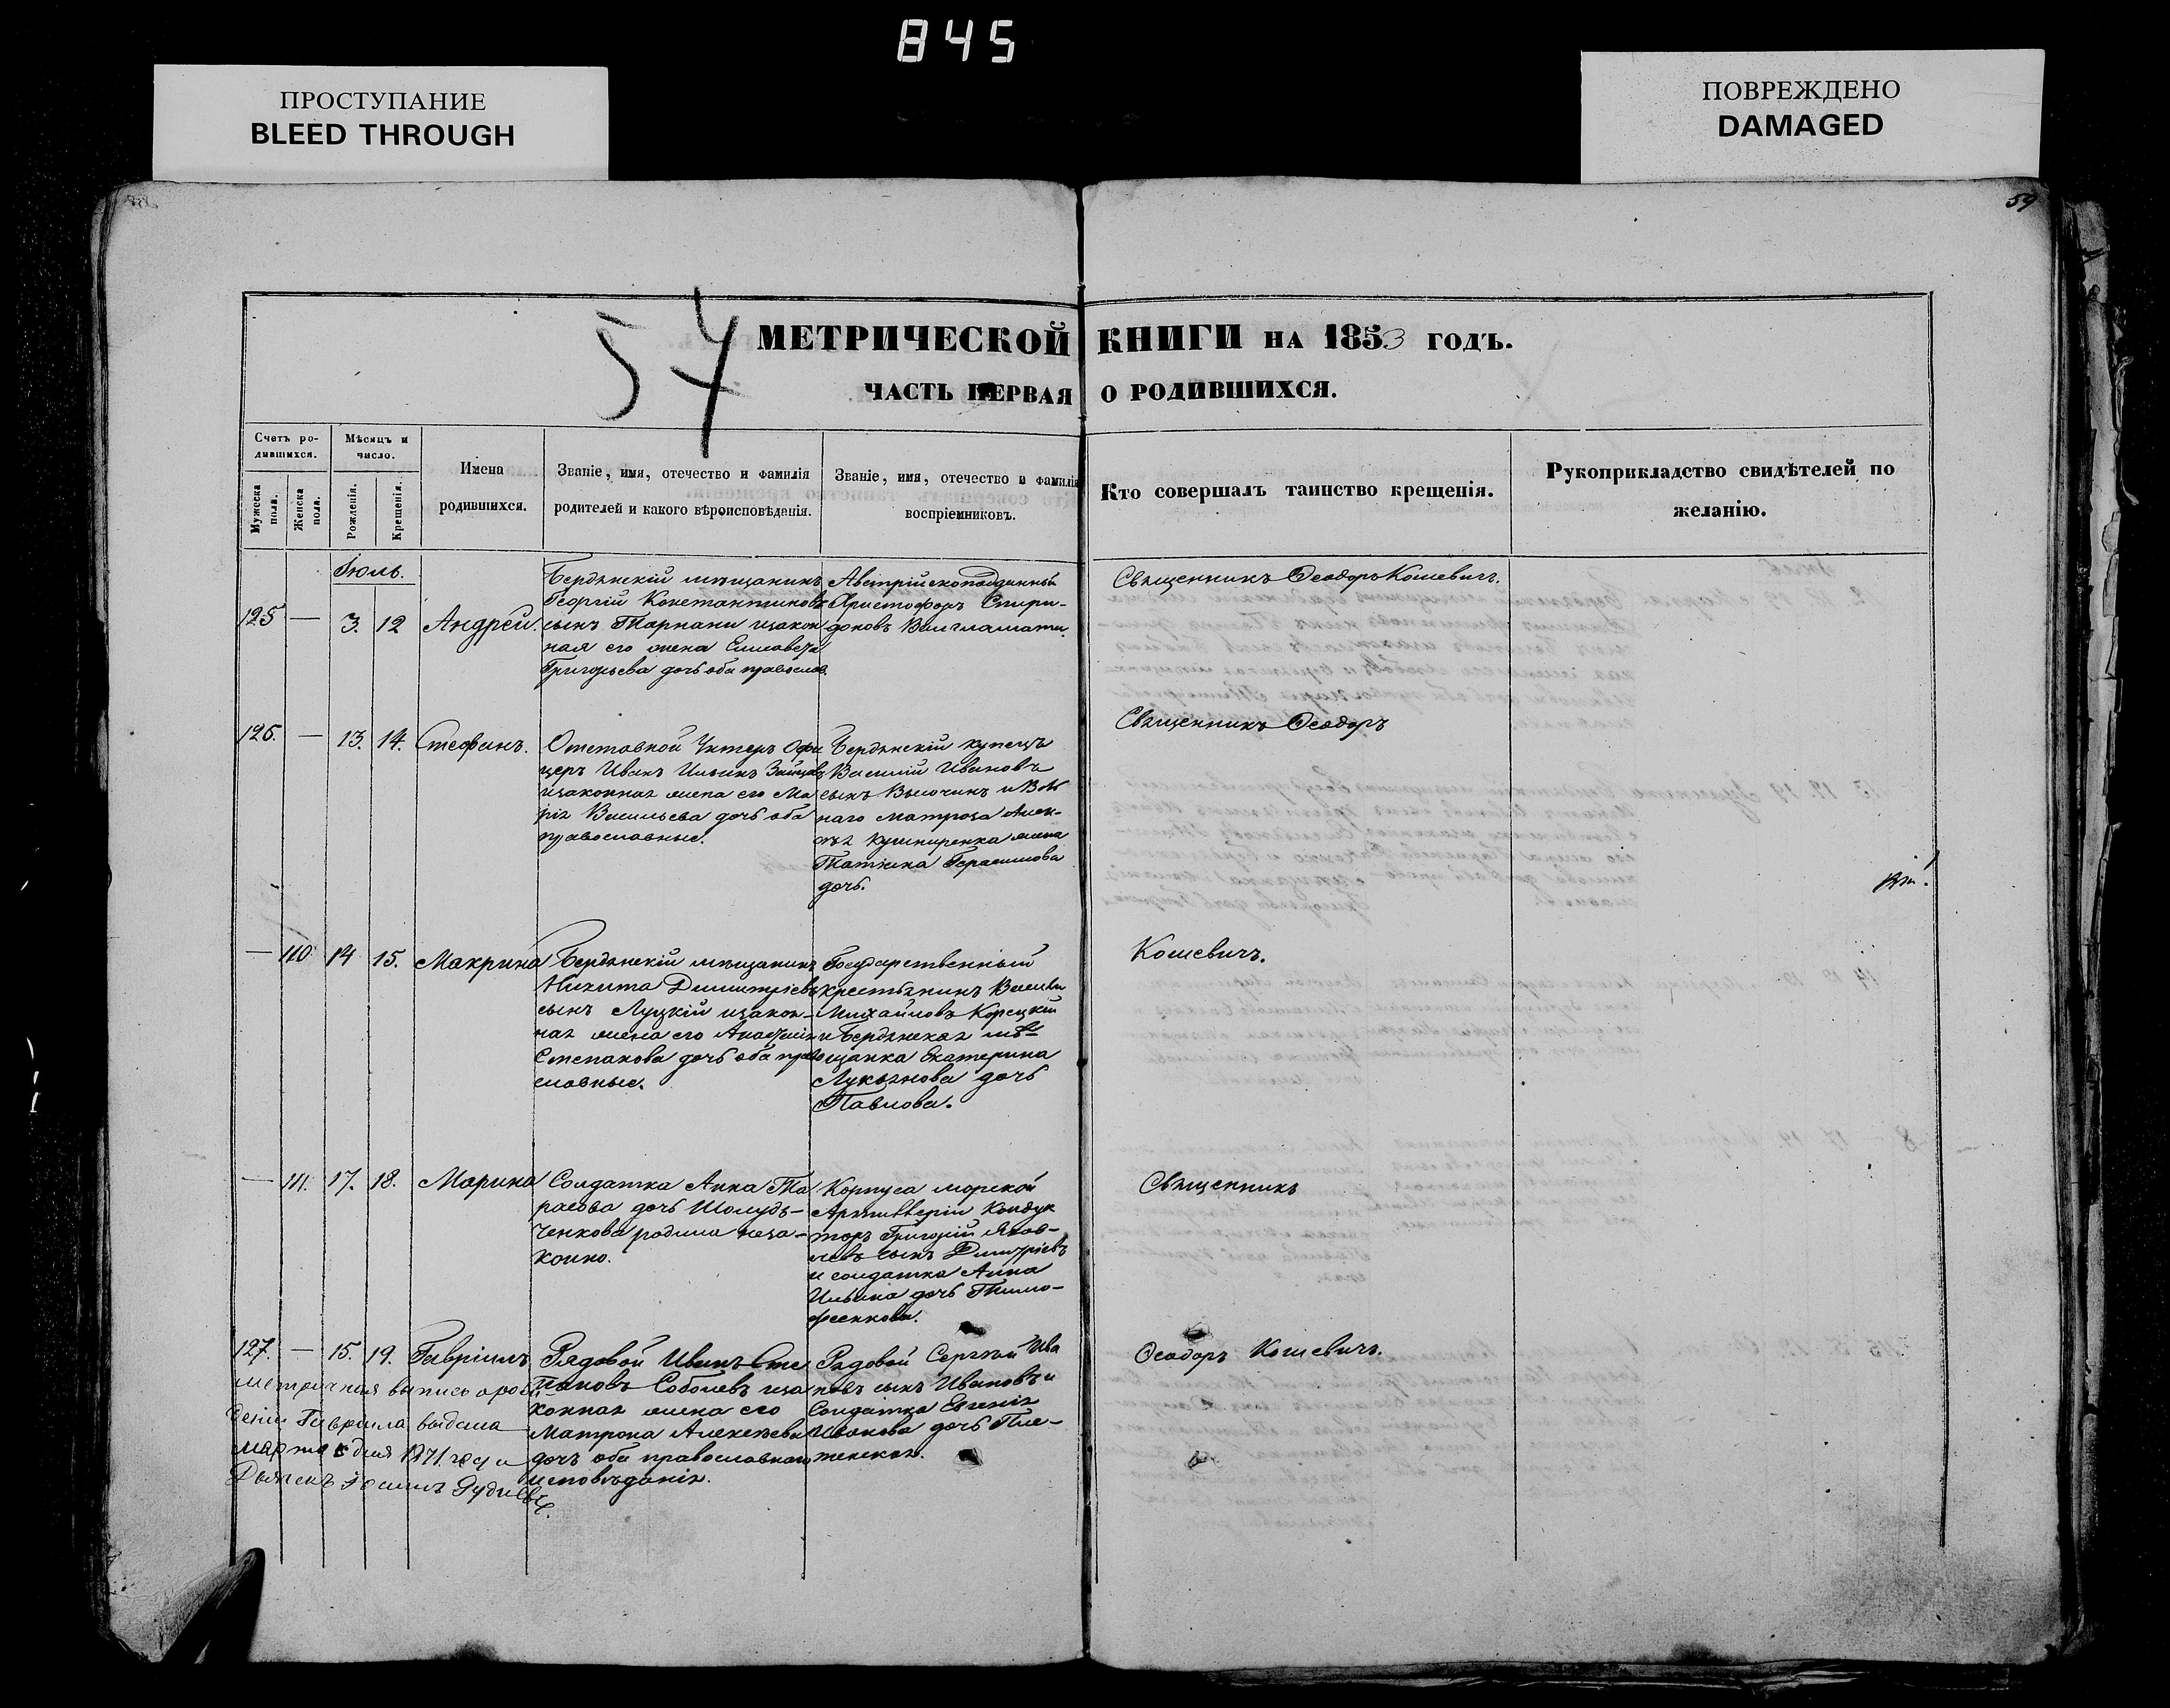 845
ПРОСТУПАНИЕ
BLEED THROUGH
ПОВРЕЖДЕНО
DAMAGED
59
54
МЕТРИЧЕСКОЙ КНИГИ НА 1853 ГОДЪ.
ЧАСТЬ ПЕРВАЯ О РОДИВШИХСЯ.
Счетъ ро-
дившихся.
Мужеска пола.
Женска пола.
Мѣсяцъ и
число.
Рожденія.
Крещенія.
Имена
родившихся.
Званіе, имя, отечество и фамилія
родителей и какого вѣроисповѣданія.
Званіе, имя, отечество и фамилія
воспріемниковъ.
Кто совершалъ таинство крещенія.
Рукоприкладство свидѣтелей по
желанію.
Іюль.
125 — 3. 12 Андрей.
Бердянскій мѣщанинъ
Георгій Константиновъ
сынъ Тарпани и закон
ная его жена Елисавета
Григорьева дочь оба правослов.
Австрійскоподданный
Христофоръ Спири-
доновъ
Священникъ Ѳеодоръ Кошевичъ.
126. — 13. 14. Стефанъ.
Отставной Унтеръ Офи
церъ Иванъ Ильинъ Зайцовъ
и законная жена его Ма
рія Васильева дочь оба
православные.
Бердянскій купецъ
Василій Ивановъ
сынъ Высочинъ и
наго матроза Алек-
сѣя Кушниренка жена
Татіяна Герасимова
дочь.
Священникъ Ѳеодоръ
— 110 14 15. Макрина
Бердянскій мѣщанинъ
Никита Димитріевъ
сынъ Луцкій и закон-
ная жена его Анастасія
Степанова дочь оба право
славные.
Государственный
крестьянинъ Василій
Михайловъ Корецкій
и Бердянская мѣ-
щанка Екатерина
Лукьянова дочь
Павлова.
Кошевичъ.
— 111. 17. 18. Марина
Солдатка Анна Та
расова дочь Шолудь-
ченкова родила неза-
конно.
Корпуса морской
Артиллеріи Кондук
торъ Григорій Яков-
левъ сынъ Димитріевъ
и солдатка Анна
Ильина дочь Тимо-
феенкова.
Священникъ
127. — 15. 19. Гавріилъ
Рядовой Иванъ Сте
пановъ Соболевъ и за
конная жена его
Матрона Алексѣева
дочь оба православнаго
исповѣданія.
Рядовой Сергѣй Ива
новъ сынъ Ивановъ и
Солдатка Евгенія
Иванова дочь Пле-
тенская.
Ѳеодоръ Кошевичъ.
Метричная выпись о рож
деніи Гавріила выдана
марта дня 1871 года